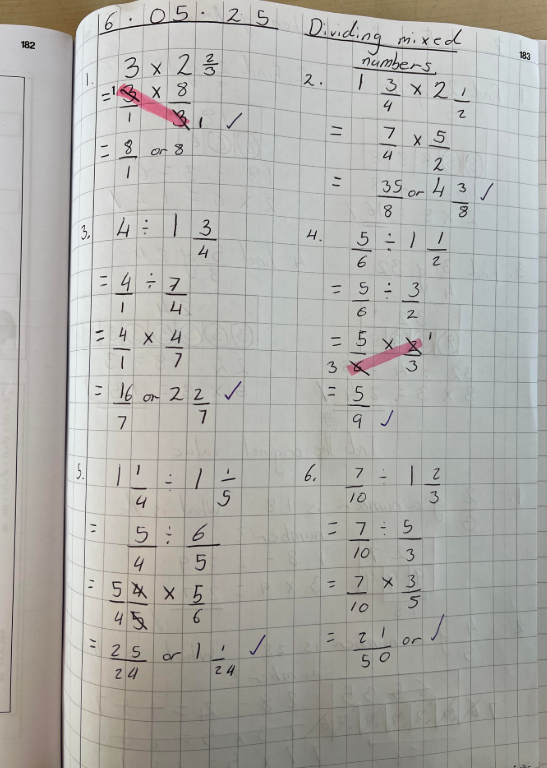 182
183
6.05.25 Dividing mixed numbers
1. 3 × 2 2/3
= 3/1 × 8/3 1 1 ✓
= 8/1 or 8
2. 1 3/4 × 2 1/2
= 7/4 × 5/2
= 35/8 or 4 3/8 ✓
3. 4 ÷ 1 3/4
= 4/1 ÷ 7/4
= 4/1 × 4/7
= 16/7 or 2 2/7 ✓
4. 5/6 ÷ 1 1/2
= 5/6 ÷ 3/2
= 5/6 × 2/3 3 1
= 5/9 ✓
5. 1 1/4 ÷ 1 1/5
= 5/4 ÷ 6/5
= 5/4 4/5 × 5/6
= 25/24 or 1 1/24 ✓
6. 7/10 ÷ 1 2/3
= 7/10 ÷ 5/3
= 7/10 × 3/5
= 21/50 or ✓